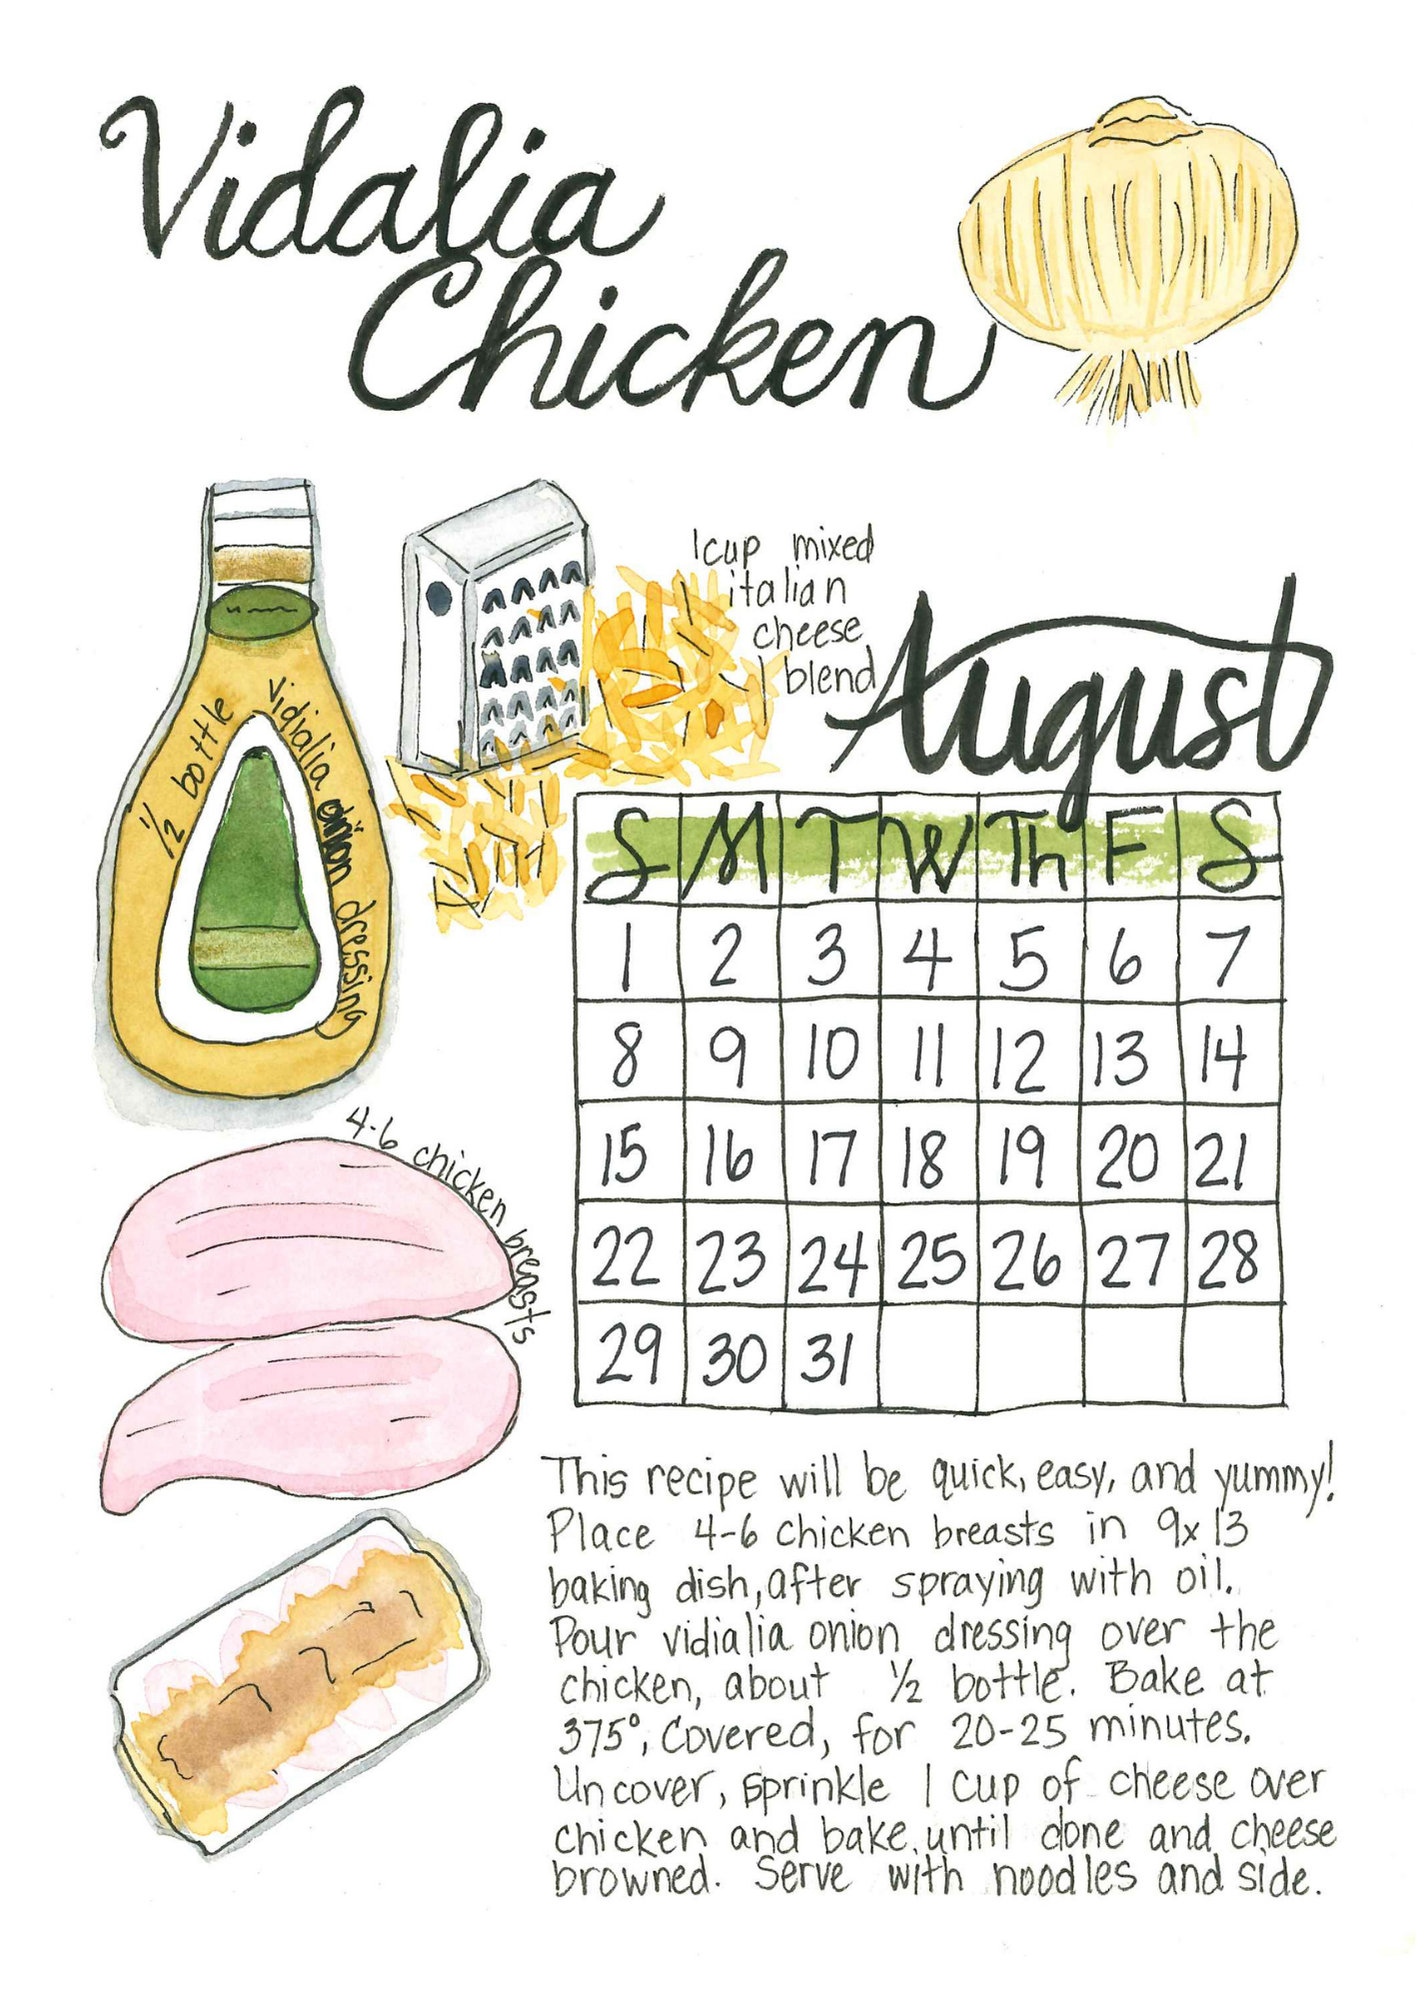 Vidalia
Chicken
1 cup mixed
italian
cheese
blend
1/2 bottle
Vidialia onion dressing
4-6 chicken breasts
August
S M T W Th F S
1 2 3 4 5 6 7
8 9 10 11 12 13 14
15 16 17 18 19 20 21
22 23 24 25 26 27 28
29 30 31
This recipe will be quick, easy, and yummy!
Place 4-6 chicken breasts in 9x13
baking dish, after spraying with oil.
Pour vidialia onion dressing over the
chicken, about 1/2 bottle. Bake at
375°, Covered, for 20-25 minutes.
Uncover, sprinkle 1 cup of cheese over
chicken and bake until done and cheese
browned. Serve with noodles and side.